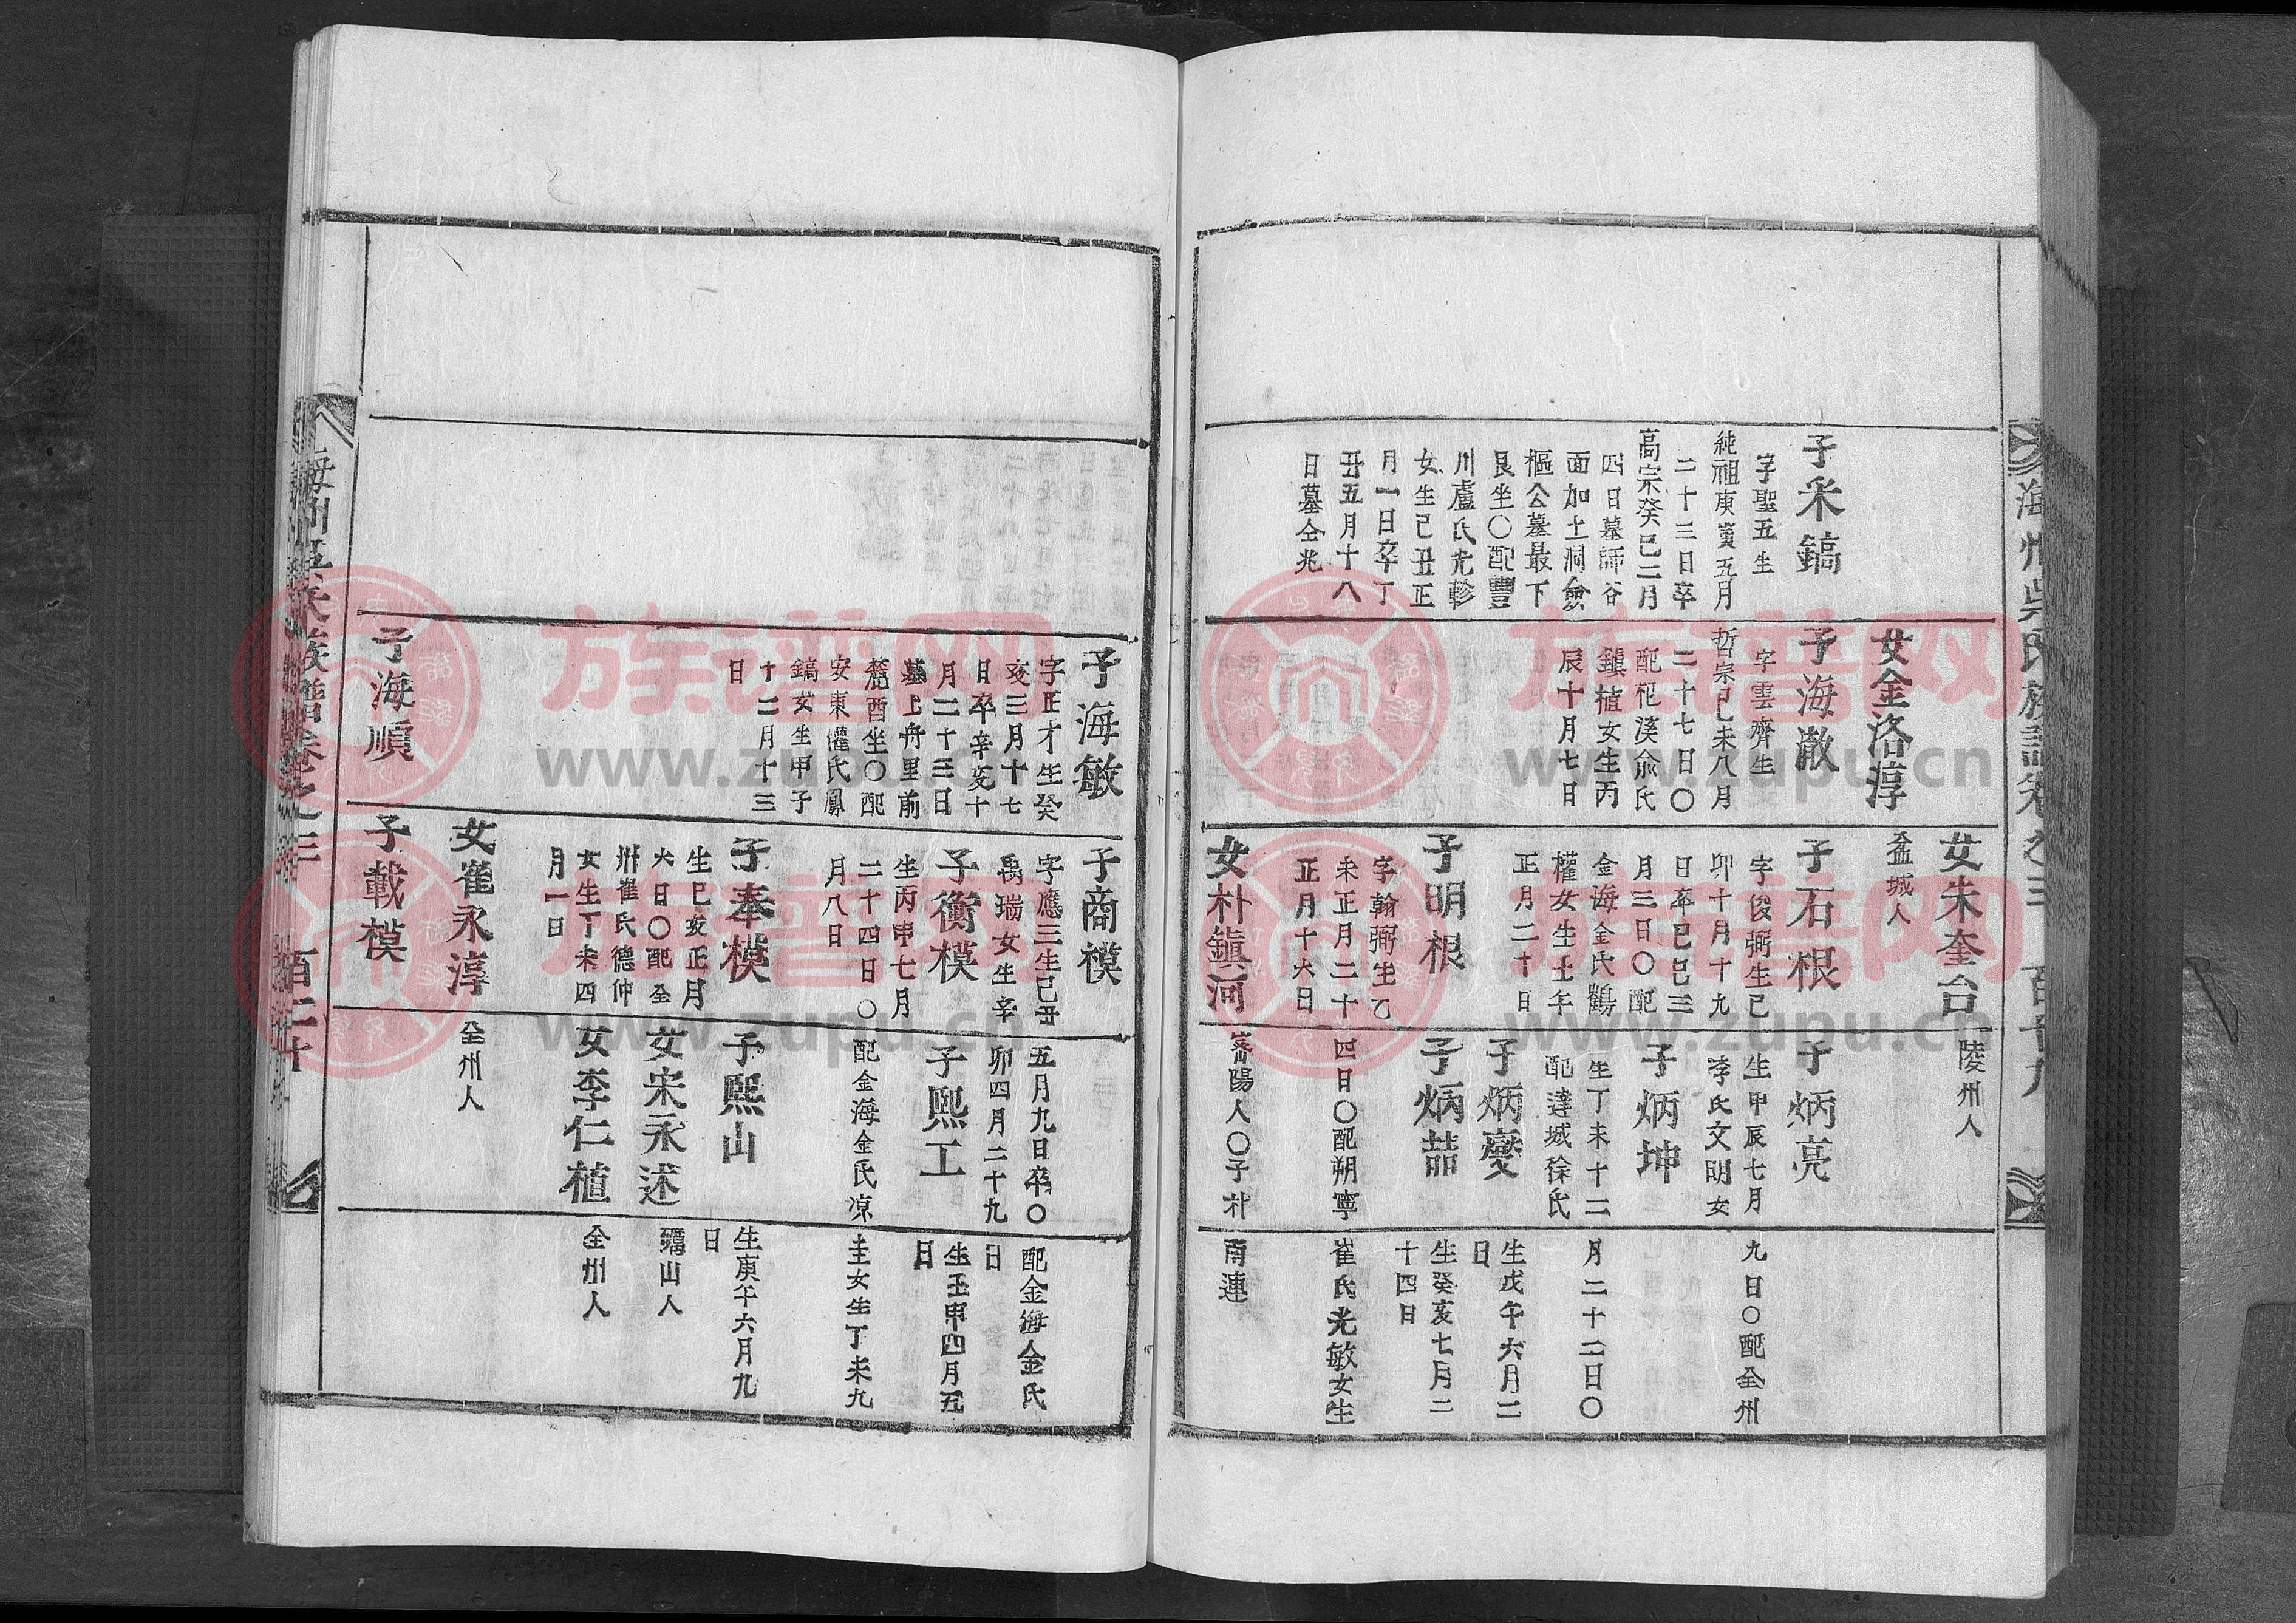 海州吳氏族譜卷之三 百十九
子采鎬
字聖五生
純祖庚寅五月
二十三日卒
高宗癸巳二月
四日墓師谷
面加土洞僉
樞公墓最下
艮坐〇配豐
川盧氏光軫
女生己丑正
月一日卒丁
丑五月十八
日墓仝兆
女金洛淳
盆城人
子海澈
字雲齊生
哲宗己未八月
二十七日〇
配杞溪兪氏
鎭植女生丙
辰十月七日
女朱奎台
陵州人
子石根
字俊弼生己
卯十月十九
日卒巳巳三
月三日〇配
金海金氏鶴
權女生壬午
正月二十日
子明根
字翰弼生乙
未正月二十
四日〇配朔寧
崔氏光敏女生
正月十六日
女朴鎭河
密陽人〇子朴
南連
子炳亮
生甲辰七月
九日〇配全州
李氏文明女
子炳坤
生丁未十二
月二十二日〇
配達城徐氏
子炳燮
生戊午六月二
日
子炳喆
生癸亥七月二
十四日
子海敏
字正才生癸
亥三月十七
日卒辛亥十
月二十三日
墓上舟里前
麓酉坐〇配
安東權氏鳳
鎬女生甲子
十二月十三
日
子海順
子商模
字應三生己丑
五月九日卒〇
配金海金氏
禹瑞女生辛
卯四月二十九
日
子衡模
生丙申七月
二十四日〇
配金海金氏凉
圭女生丁未九
月八日
子奉模
生己亥正月
六日〇配全
州崔氏德仲
女生丁未四
月一日
女崔永淳
全州人
子載模
子熙工
生壬申四月五
日
子熙山
生庚午六月九
日
女宋永述
礪山人
女李仁植
全州人
海州吳氏族譜卷之三 百二十
族谱网
www.zupu.cn
族谱网
www.zupu.cn
族谱网
www.zupu.cn
族谱网
www.zupu.cn